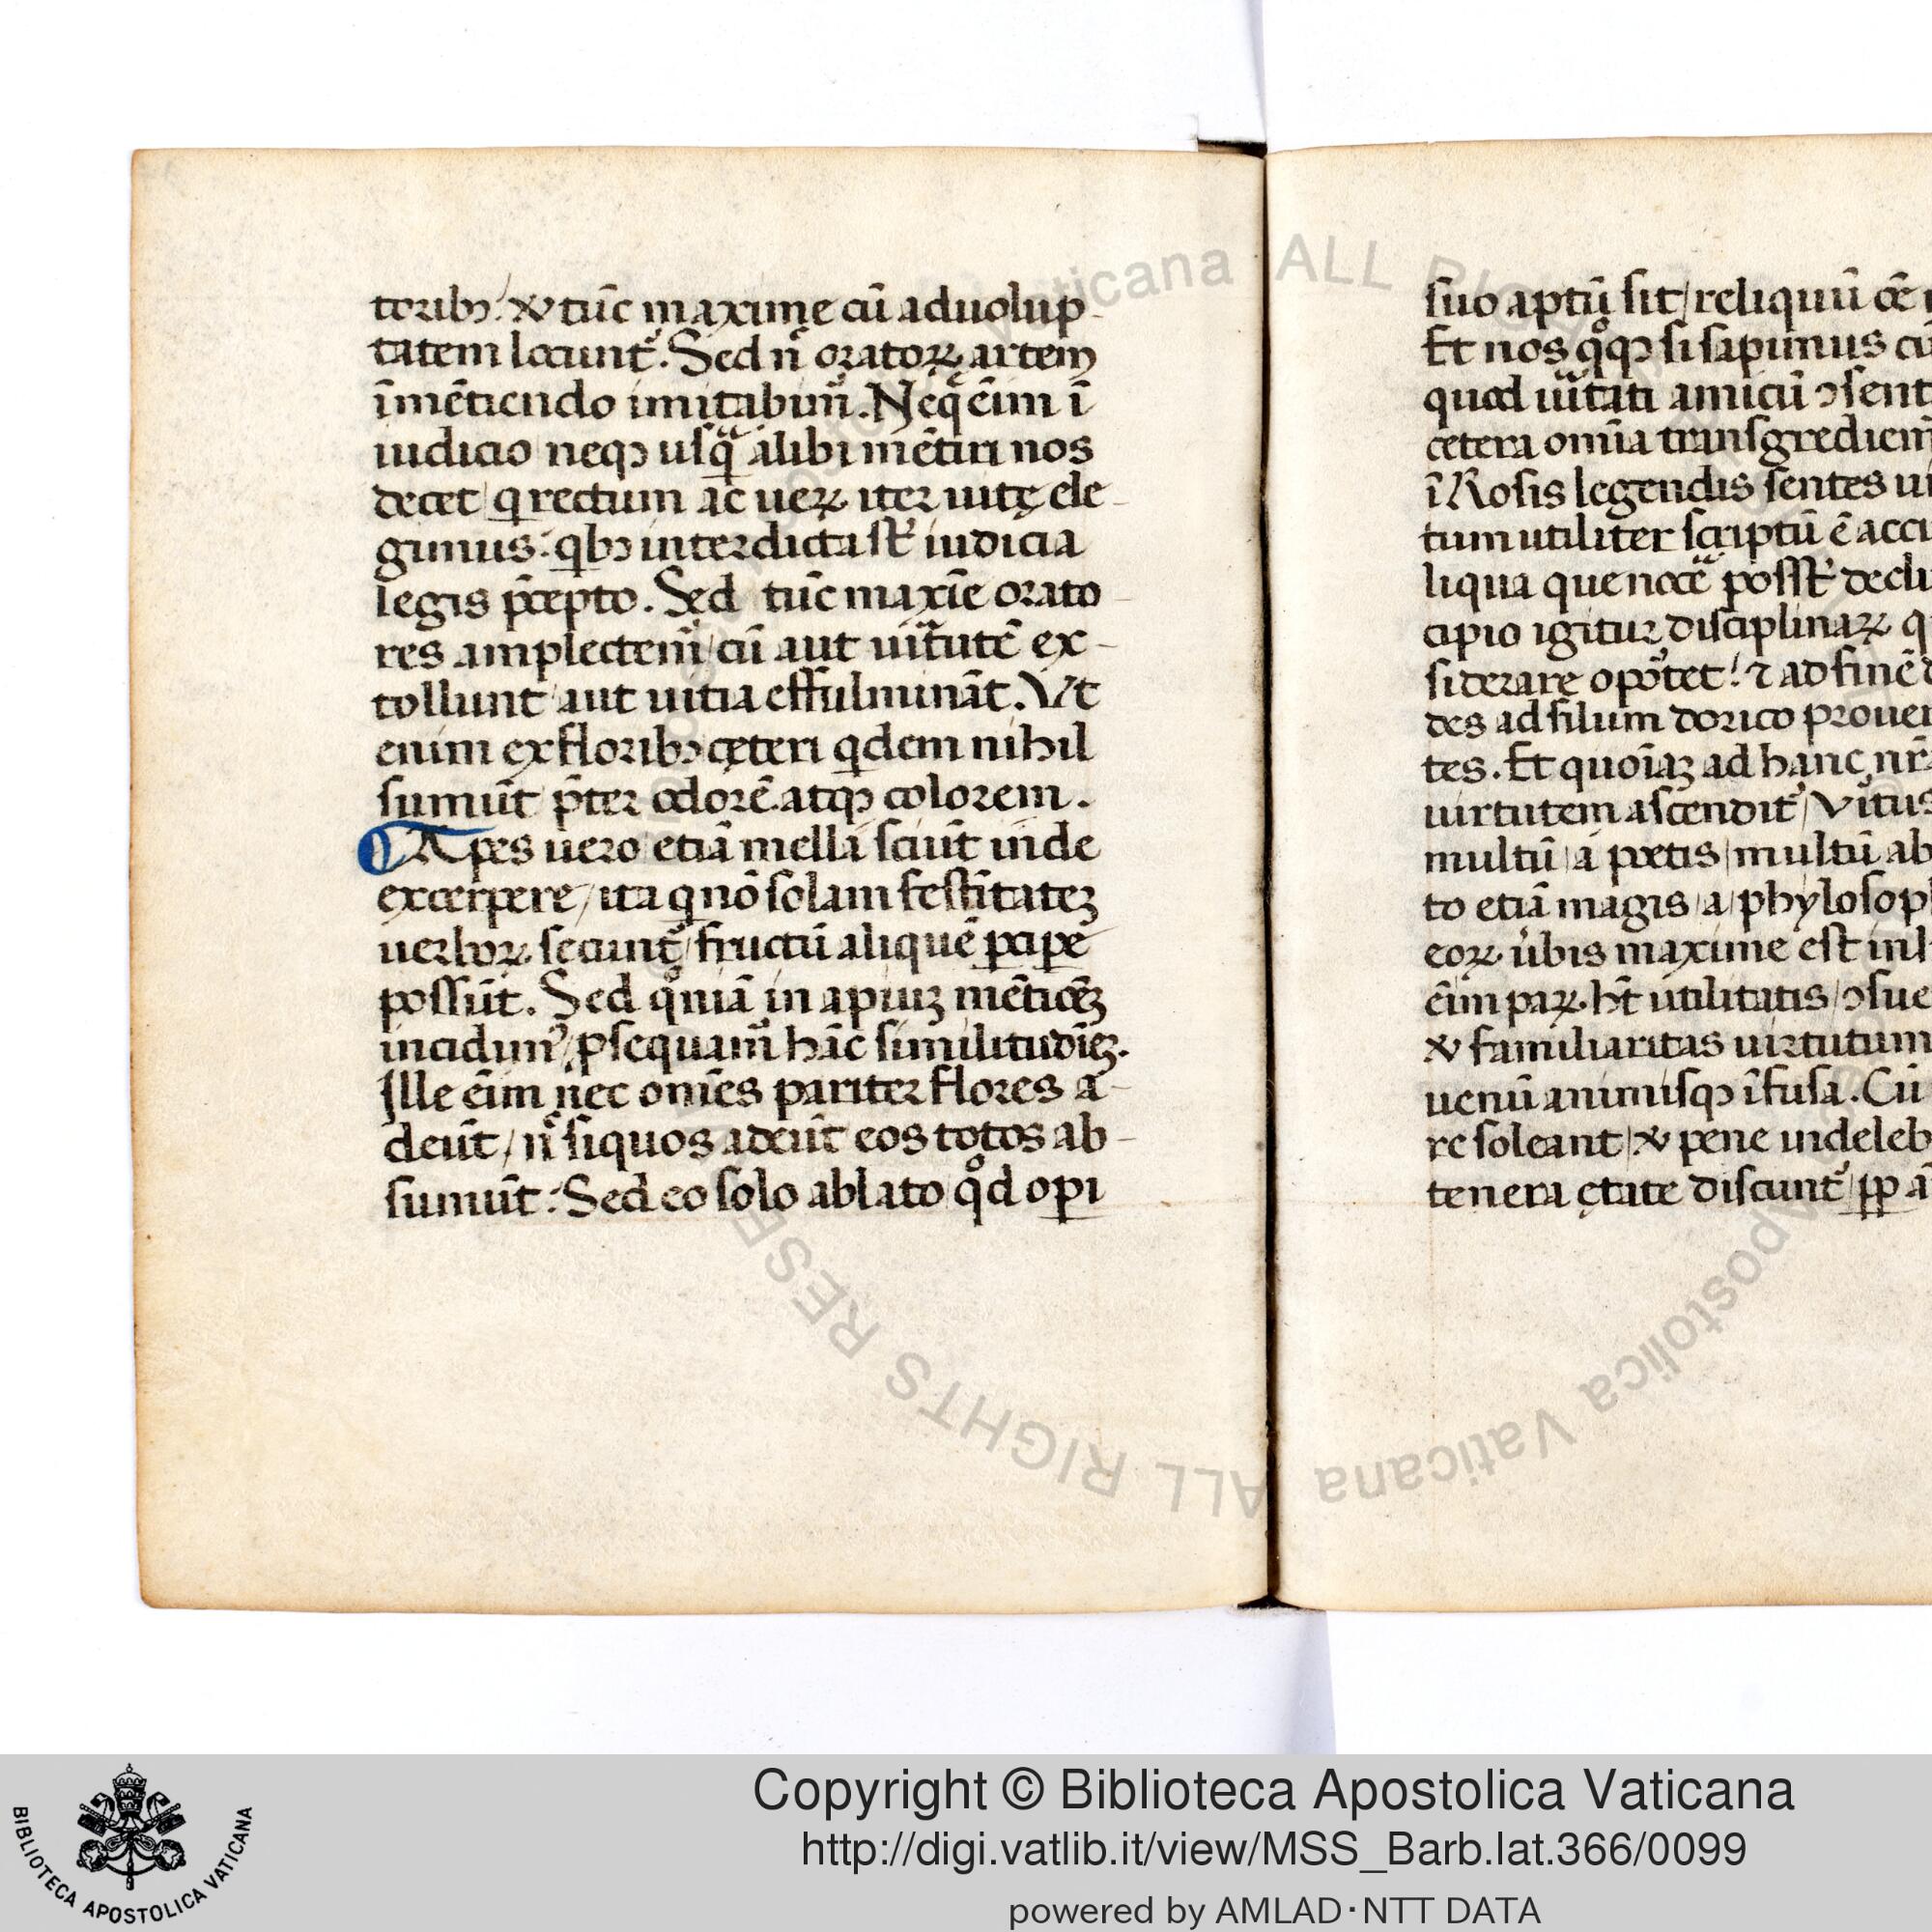 toribꝫ: & tūc maxime cū aduolup-
tatem locunt᷑. Sed nͥ oratoꝝ artem
ī mētiendo imitabim᷒. Neqꝫ ēim ī
iudicio neqꝫ usqᷓ alibi mētiri nos
decet / q rectum ac ueꝝ iter uitę ele-
gimus: qbꝫ interdicta st̄ iudicia
legis p̄cepto. Sed tūc maxīe orato-
res amplectem᷒ / cū aut uirtutē ex-
tollunt / aut uitia effulmināt. Vt
enim ex floribꝫ cęteri qdem nihil
sumūt p̄ter odorē atqꝫ colorem.
Apes uero etiā mella sciūt inde
excerpere / ita q nō solam festītateꝫ
uerboꝝ secunt᷑ / fructū aliquē ꝑcipe
possūt. Sed qͦniā in apiuꝫ mētiōeꝫ
incidim᷒ / ꝑsequam᷒ hāc similitudīeꝫ.
Ille ēim nec omēs pariter flores a-
deūt / nͥ siquos adeūt eos totos ab-
sumūt: Sed eo solo ablato qͦd opi
suo aptū sit / reliquū oē
Et nos qͦqꝫ si sapimus
quod uītati amicū ↄsent
cetera omīa transgrediem᷒
ī Rosis legendis sentes
tum utiliter scriptū ē
liqua que nocē posst̄
cipio igitur disciplinaꝝ
siderare oportet: ⁊ ad finē
des ad filum dorico
tes. Et quoīaꝫ ad hanc nr̄
uirtutem ascendit᷑ / Vitus
multū a poetis / multū ab
to etiā magis a phylosop
eoꝝ úbis maxime est
ēim paꝝ h̄t utilitatis / ↄsue
& familiaritas uirtutum
uenū animisqꝫ īfusa. Cū
re soleant / & pene indeleb
tenera ętate discunt᷑
Copyright © Biblioteca Apostolica Vaticana
http://digi.vatlib.it/view/MSS_Barb.lat.366/0099
powered by AMLAD·NTT DATA
BIBLIOTECA APOSTOLICA VATICANA